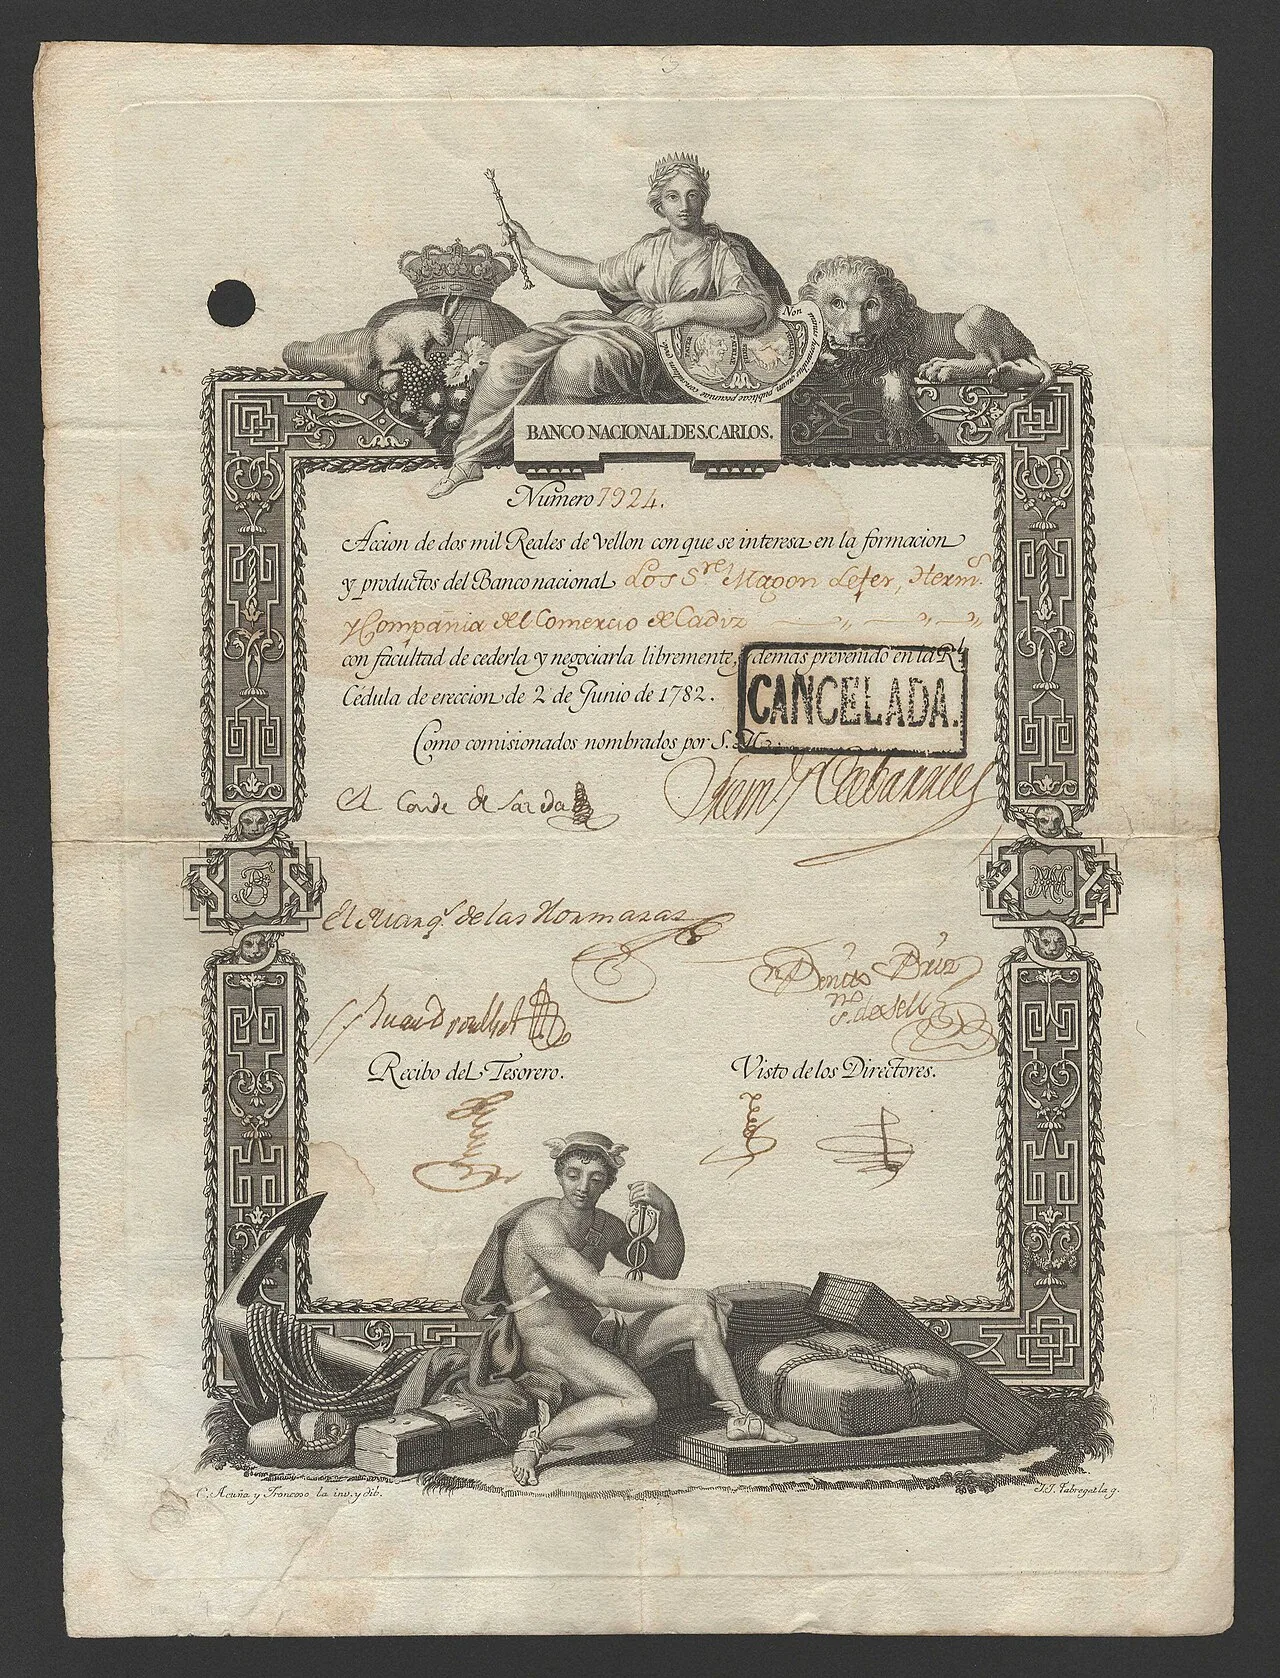 Non minus hominibus quam publicae pecuniae consulendum
BANCO NACIONAL DE S. CARLOS.
Numero 7924.
Accion de dos mil Reales de Vellon con que se interesa en la formacion
y productos del Banco nacional Los S.res Magon Lefer, Herm.s
y Compañia del Comercio de Cadiz
con facultad de cederla y negociarla libremente, y demas prevenido en la R.l
Cédula de ereccion de 2 de Junio de 1782.
CANCELADA.
Como comisionados nombrados por S. M.
El Conde de
El Marq.s de las Hormazas
Benito Briz
Recibo del Tesorero.
Visto de los Directores.
C. Acuña y Troncoso la inv. y dib.
J.J. Fabregat la g.